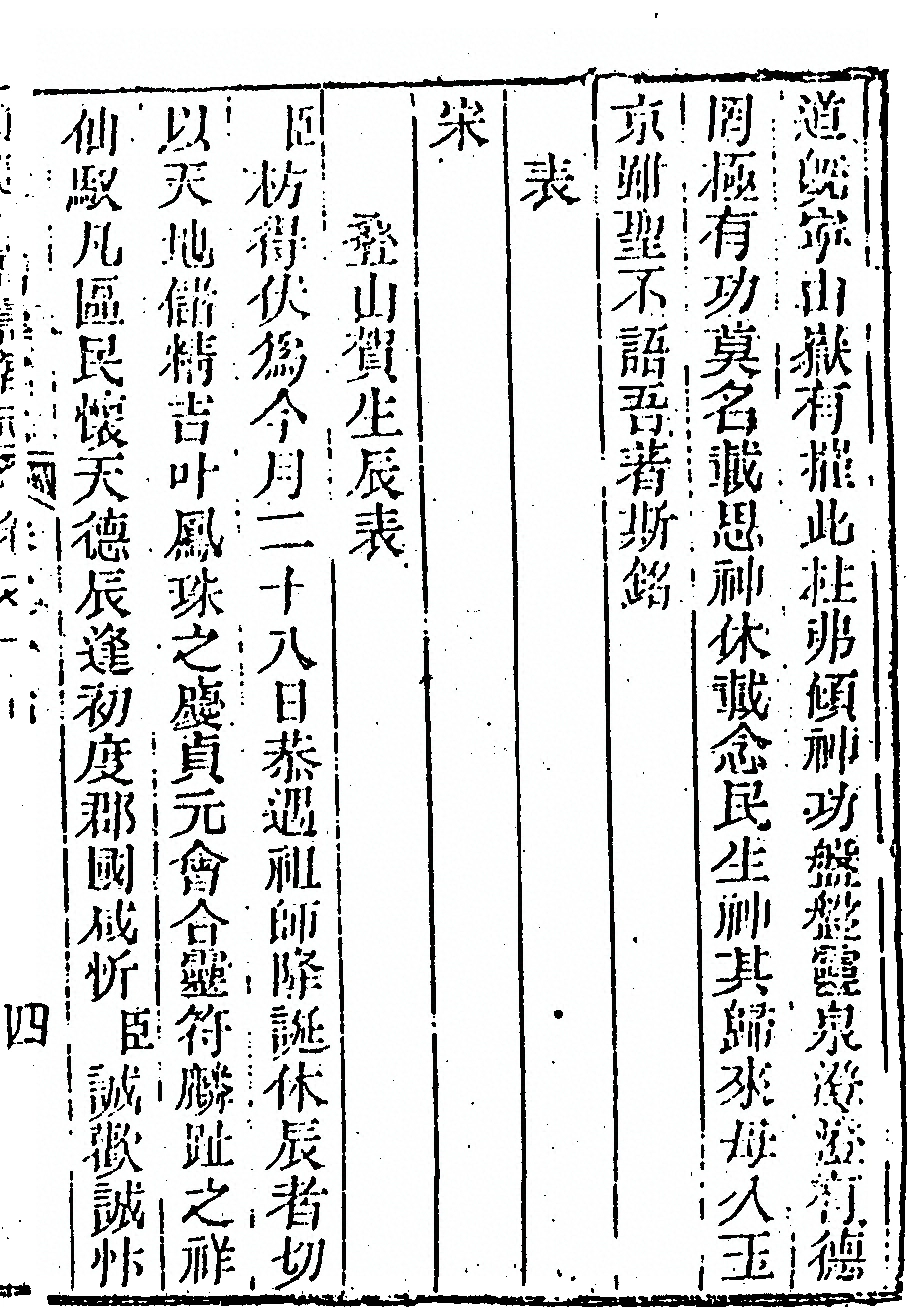 道貌穹山嶽有摧此柱弗傾神功盤盤靈泉濙濙有德
罔極有功莫名載思神休載念民生神其歸來毋入玉
京雖聖不語吾著斯銘
表
宋
疊山賀生辰表
臣枋得伏爲今月二十八日恭遇祖師降誕休辰者切
以天地儲精吉叶鳳珠之慶貞元會合靈符麟趾之祥
仙馭凡區民懷天德辰逢初度郡國咸忻臣誠歡誠忭
四